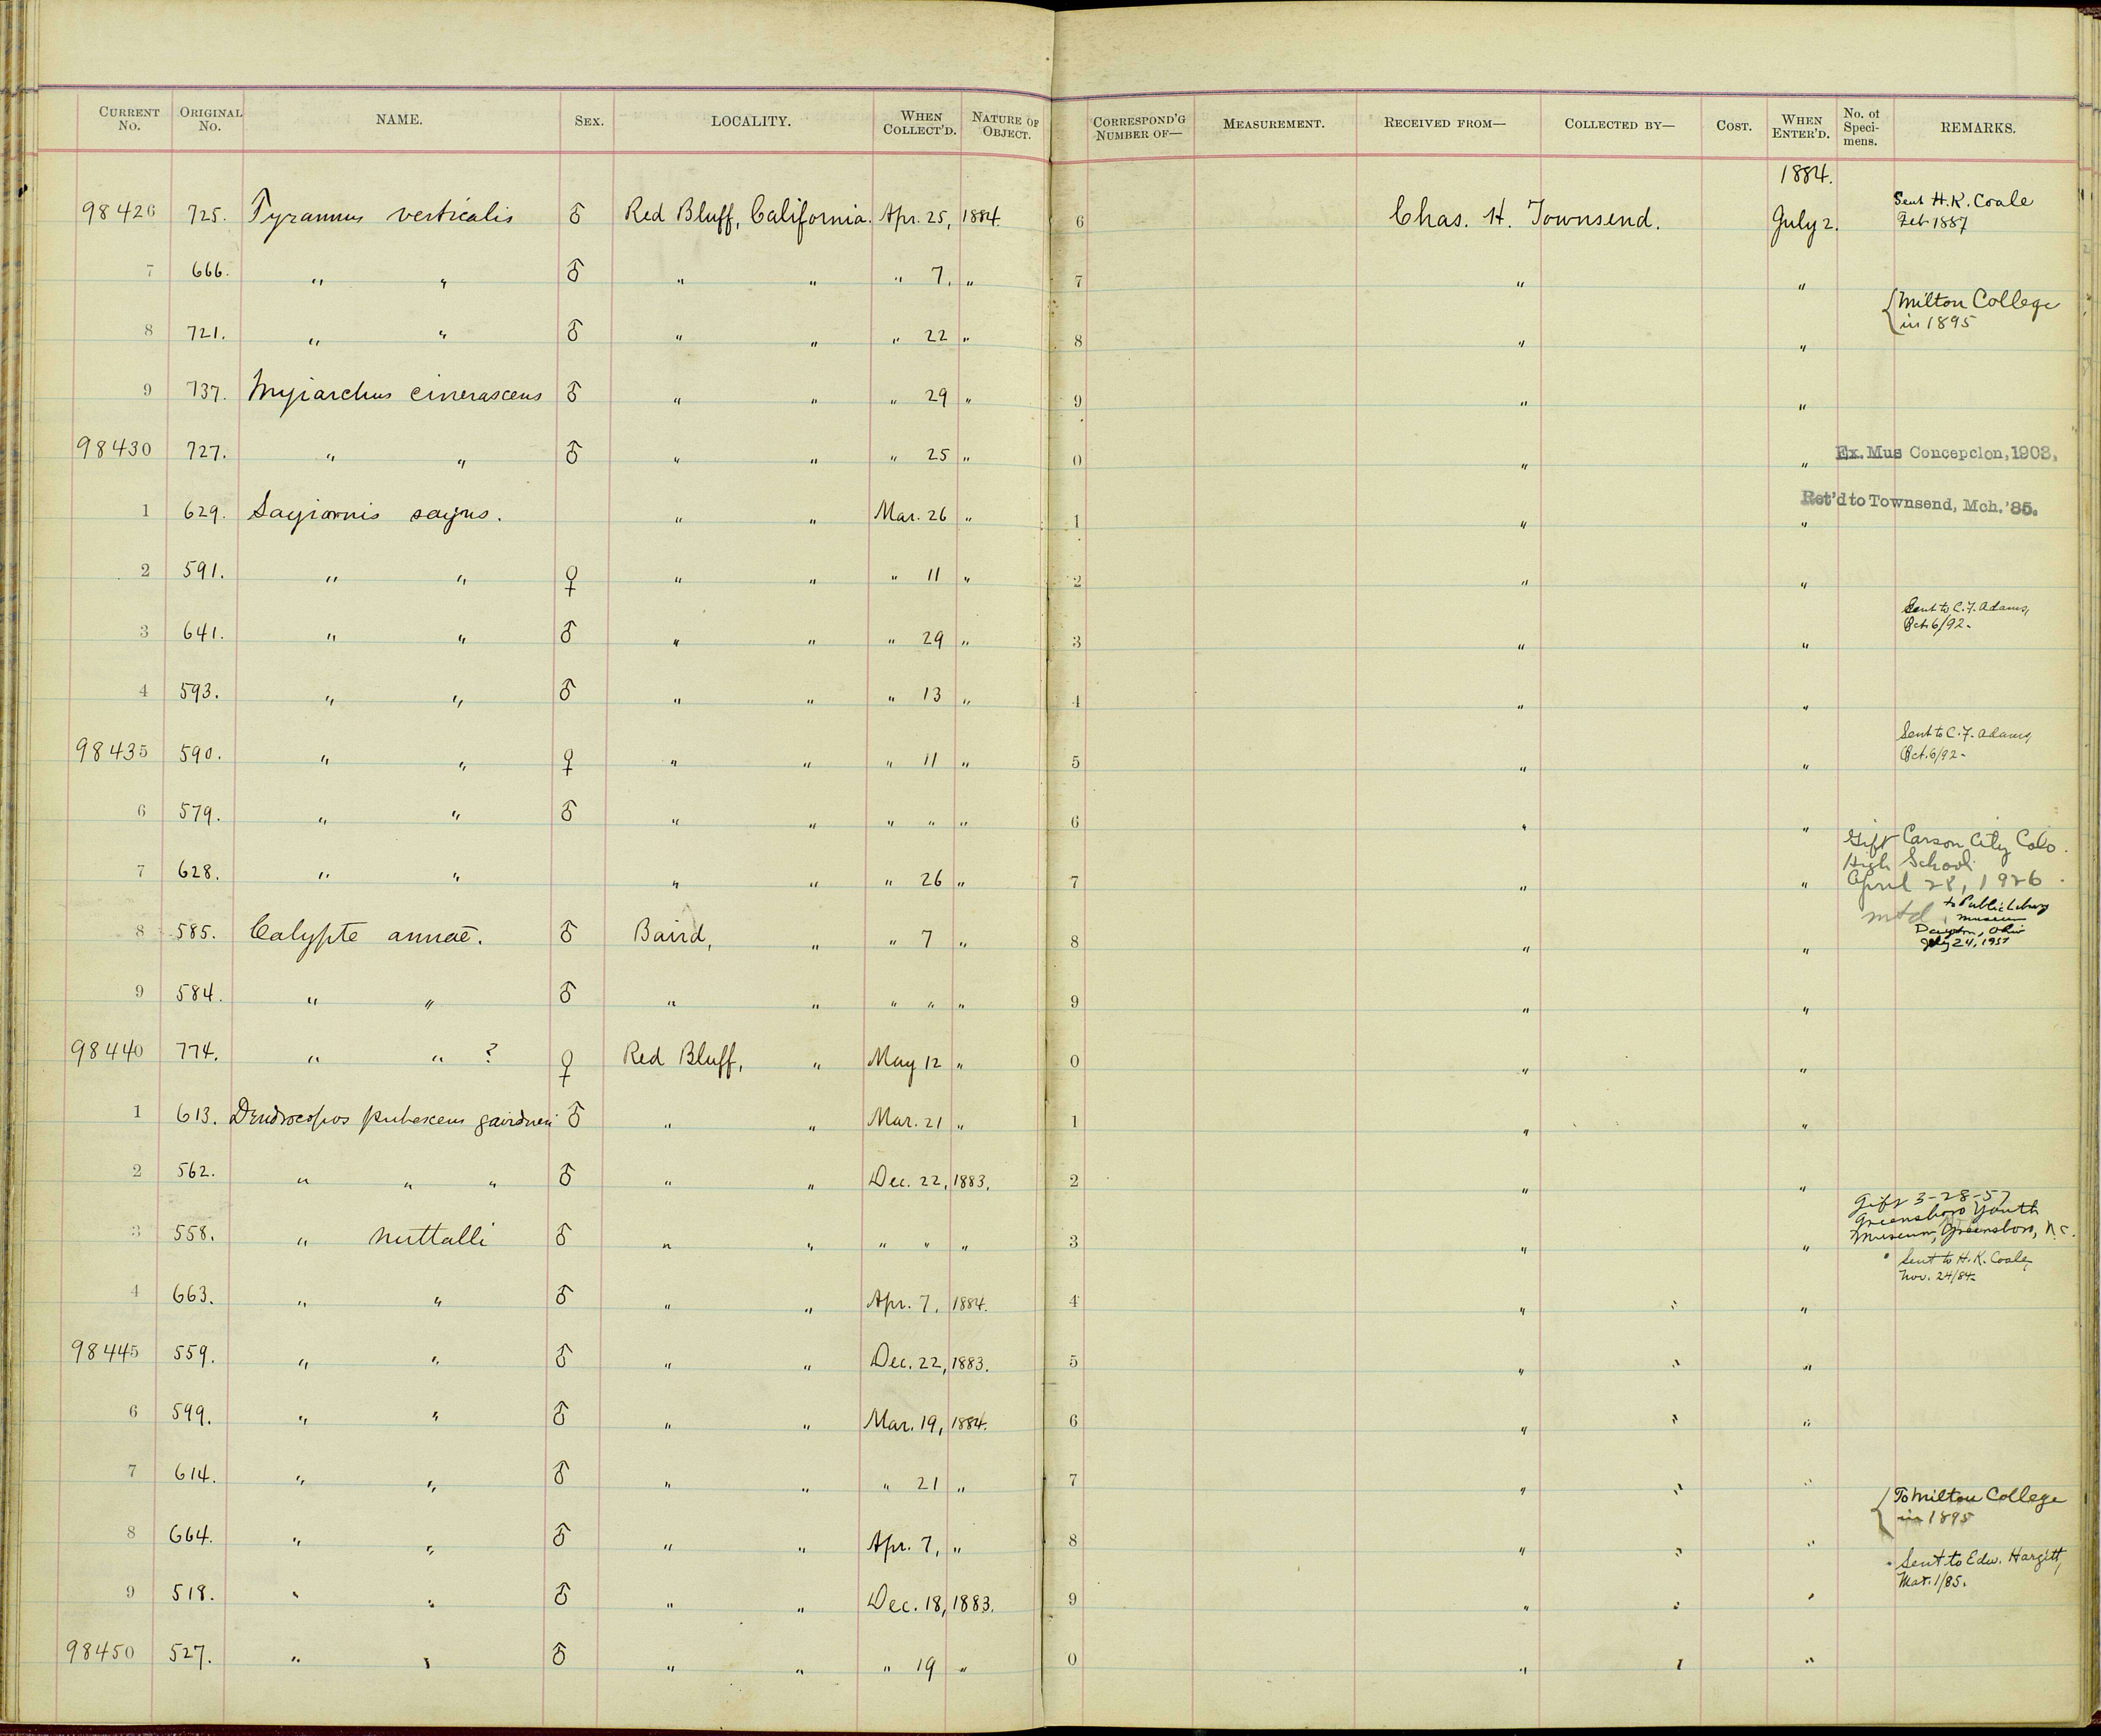 CURRENT No. ORIGINAL No. NAME. SEX. LOCALITY. WHEN COLLECT'D. NATURE OF OBJECT. CORRESPOND'G NUMBER OF— MEASUREMENT. RECEIVED FROM— COLLECTED BY— COST. WHEN ENTER'D. No. of Specimens. REMARKS.
1884.
98426 725. Tyrannus verticalis ♂ Red Bluff, California. Apr. 25, 1884. 6 Chas. H. Townsend. July 2. Sent H. K. Coale Feb 1887
7 666. " " ♂ " " " 7, " 7 " "
{ Milton College in 1895
8 721. " " ♂ " " " 22 " 8 " "
9 737. Myiarchus cinerascens ♂ " " " 29 " 9 " "
98430 727. " " ♂ " " " 25 " 0 " " Ex. Mus Concepcion, 1903.
1 629. Sayiornis sayus. " " Mar. 26 " 1 " " Ret'd to Townsend, Mch. '85.
2 591. " " ♀ " " " 11 " 2 " "
3 641. " " ♂ " " " 29 " 3 " " Sent to C. F. Adams, Oct. 6/92-
4 593. " " ♂ " " " 13 " 4 " "
98435 590. " " ♀ " " " 11 " 5 " " Sent to C. F. Adams, Oct. 6/92-
6 579. " " ♂ " " " " " 6 " "
7 628. " " " " " 26 " 7 " " Gift Carson City Colo. High School April 28, 1926
8 585. Calypte annae. ♂ Baird, " " 7 " 8 " " mtd. to Public Library Museum Dayton, Ohio July 24, 1957
9 584. " " ♂ " " " " " 9 " "
98440 774. " " ? ♀ Red Bluff, " May 12 " 0 " "
1 613. Dendrocopos pubescens gairdneri ♂ " " Mar. 21 " 1 " "
2 562. " " " ♂ " " Dec. 22, 1883. 2 " "
3 558. " nuttalli ♂ " " " " " 3 " " Gift 3-28-57 Greensboro Youth Museum, Greensboro, N.C.
4 663. " " ♂ " " Apr. 7, 1884. 4 " " " Sent to H. K. Coale, Nov. 24/84-
98445 559. " " ♂ " " Dec. 22, 1883. 5 " " "
6 599. " " ♂ " " Mar. 19, 1884. 6 " " "
7 614. " " ♂ " " " 21 " 7 " " "
{ To Milton College in 1895
8 664. " " ♂ " " Apr. 7, " 8 " " "
9 518. " " ♂ " " Dec. 18, 1883. 9 " " " Sent to Edw. Hargitt, Mar. 1/85.
98450 527. " " ♂ " " " 19 " 0 " " "